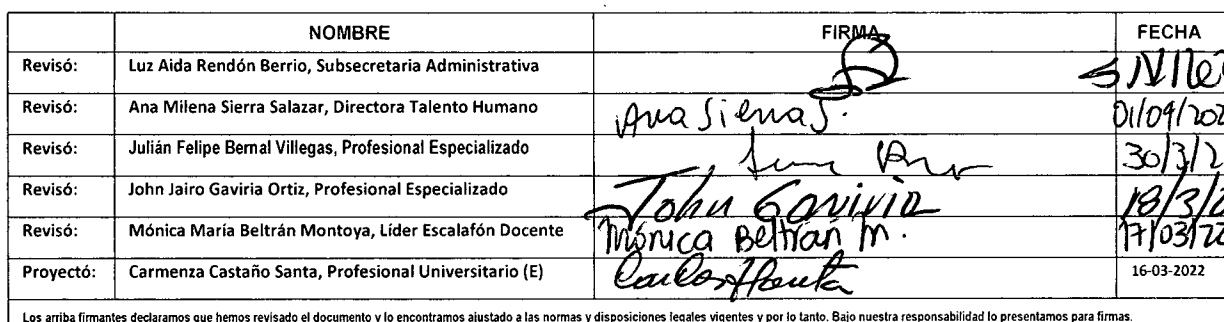 NOMBRE FIRMA FECHA
Revisó: Luz Aida Rendón Berrio, Subsecretaria Administrativa
Revisó: Ana Milena Sierra Salazar, Directora Talento Humano Ana Sierra S. 01/04/202
Revisó: Julián Felipe Bernal Villegas, Profesional Especializado 30/3/2
Revisó: John Jairo Gaviria Ortiz, Profesional Especializado John Gaviria 18/3/2
Revisó: Mónica María Beltrán Montoya, Líder Escalafón Docente Mónica Beltrán M. 17/03/20
Proyectó: Carmenza Castaño Santa, Profesional Universitario (E) 16-03-2022
Los arriba firmantes declaramos que hemos revisado el documento y lo encontramos ajustado a las normas y disposiciones legales vigentes y por lo tanto. Bajo nuestra responsabilidad lo presentamos para firmas.